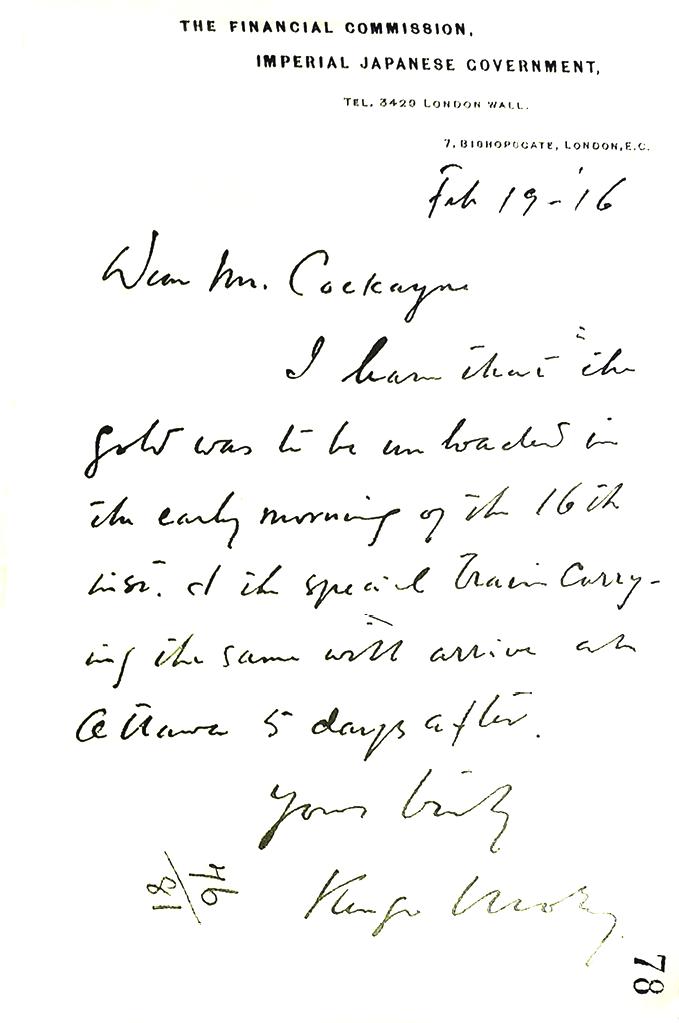 THE FINANCIAL COMMISSION,
IMPERIAL JAPANESE GOVERNMENT,
TEL. 3420 LONDON WALL.
7, BISHOPSGATE, LONDON, E.C.
Feb 19 - '16
Dear Mr. Cockayne
I learn that the
gold was to be unloaded in
the early morning of the 16th
inst. & the special train carry-
ing the same will arrive at
Ottawa 5 days after.
Yours truly
Kengo Mori
78